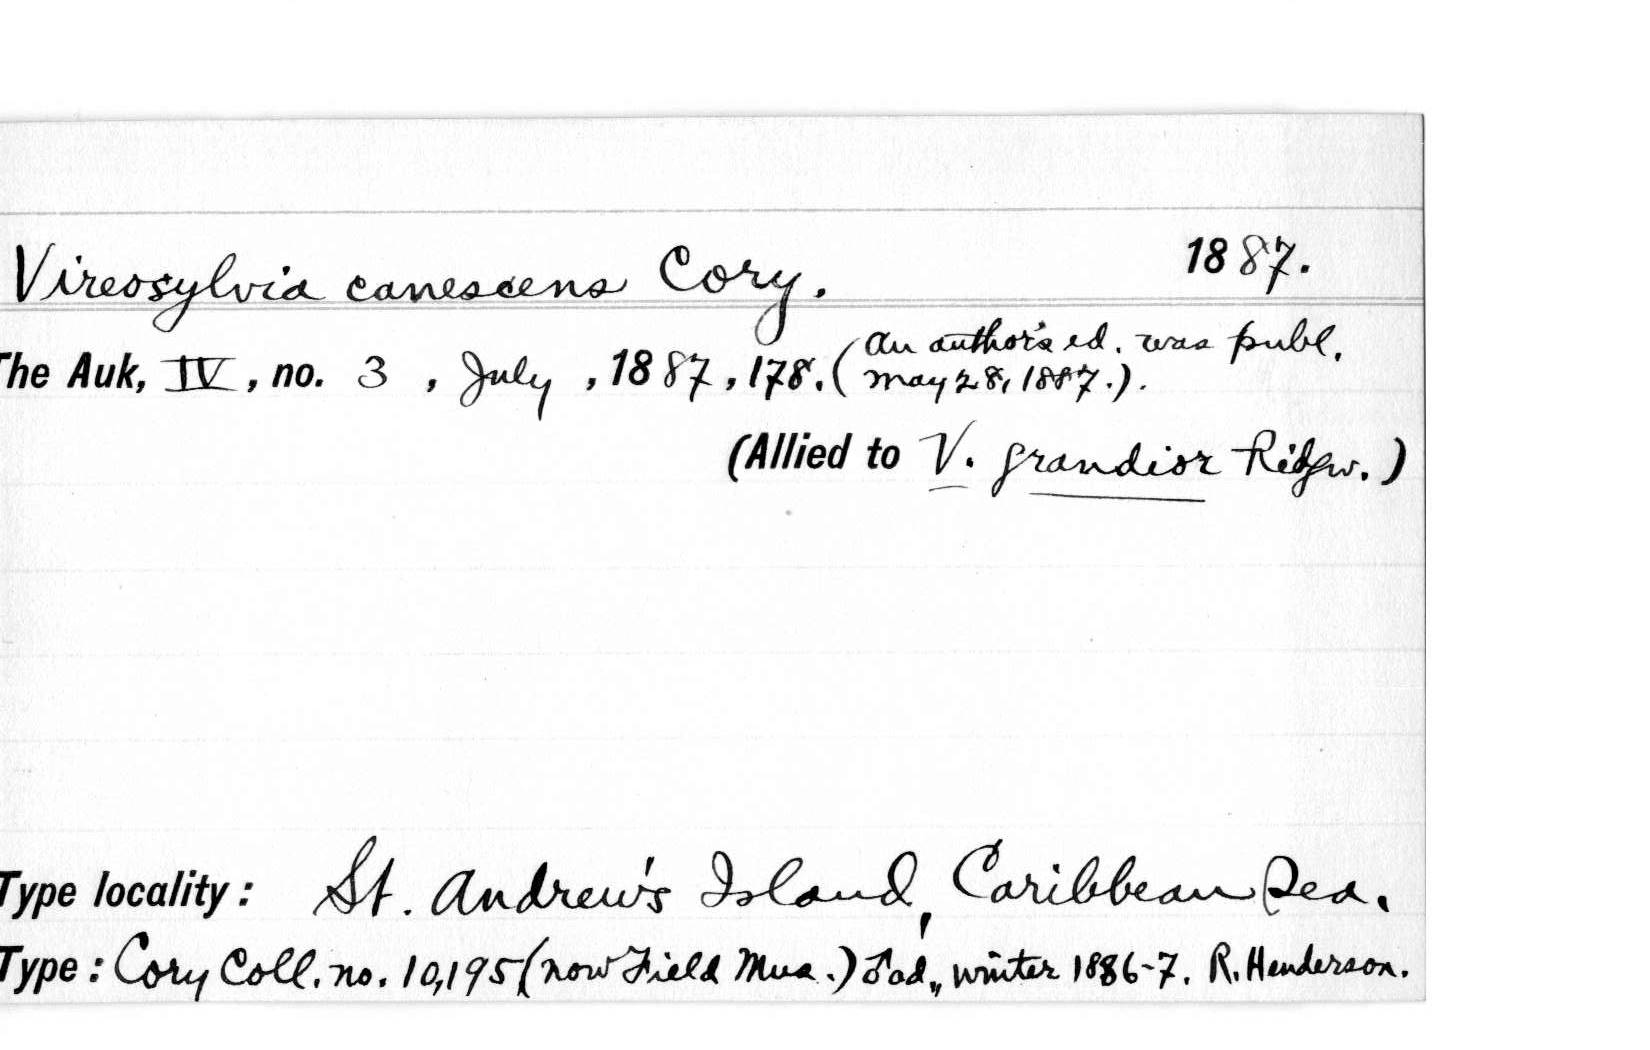 Vireosylvia canescens Cory. 1887.
The Auk, IV, no. 3, July, 1887, 178. (An author's ed. was publ.
May 28, 1887.).
(Allied to V. grandior Ridgw.)
Type locality: St. Andrew's Island, Caribbean Sea.
Type: Cory Coll. no. 10,195 (now Field Mus.) ♂ ad., winter 1886-7. R. Henderson.